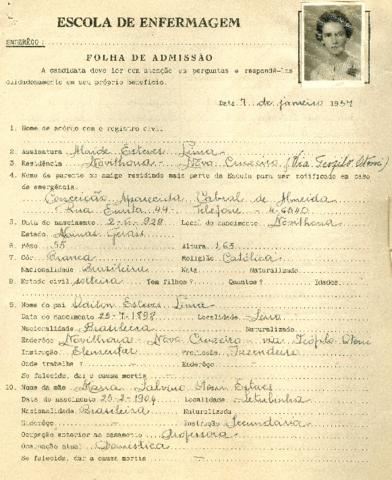 ESCOLA DE ENFERMAGEM
ENDERÊÇO:
FOLHA DE ADMISSÃO
A candidata deve ler com atenção as perguntas e respondê-las
cuidadosamente em seu próprio benefício.
Data 7 de janeiro 1957
1. Nome de acôrdo com o registro civil
2. Assinatura Alaíde Esteves Lima
3. Residência Novilhona - Novo Cruzeiro (Via Teófilo Otoni)
4. Nome de parente ou amigo residindo mais perto da Escola para ser notificado em caso
de emergência.
Conceição Aparecida Cabral de Almeida
Rua Eurita 44 - Telefone
5. Data do nascimento 2-6-928 Local do nascimento Novilhona
Estado Minas Gerais
6. Pêso 55 Altura 1,65
7. Côr Branca Religião Católica
Nacionalidade Brasileira Nata Naturalizada
8. Estado civil solteira Tem filhos? Quantos? Idades
9. Nome do pai Esteves Lima
Data do nascimento 25-7-1898 Localidade
Nacionalidade Brasileira Naturalizado
Enderêço Novilhona - Novo Cruzeiro - via Teófilo Otoni
Instrução Elementar Profissão Fazendeiro
Onde trabalha? Enderêço
Se falecido, dar a causa mortis
10. Nome da mãe Maria Esteves
Data do nascimento 25-2-1904 Localidade Setubinha
Nacionalidade Brasileira Naturalizada
Enderêço Instrução Secundária
Ocupação anterior ao casamento Professora
Ocupação atual Doméstica
Se falecida, dar a causa mortis